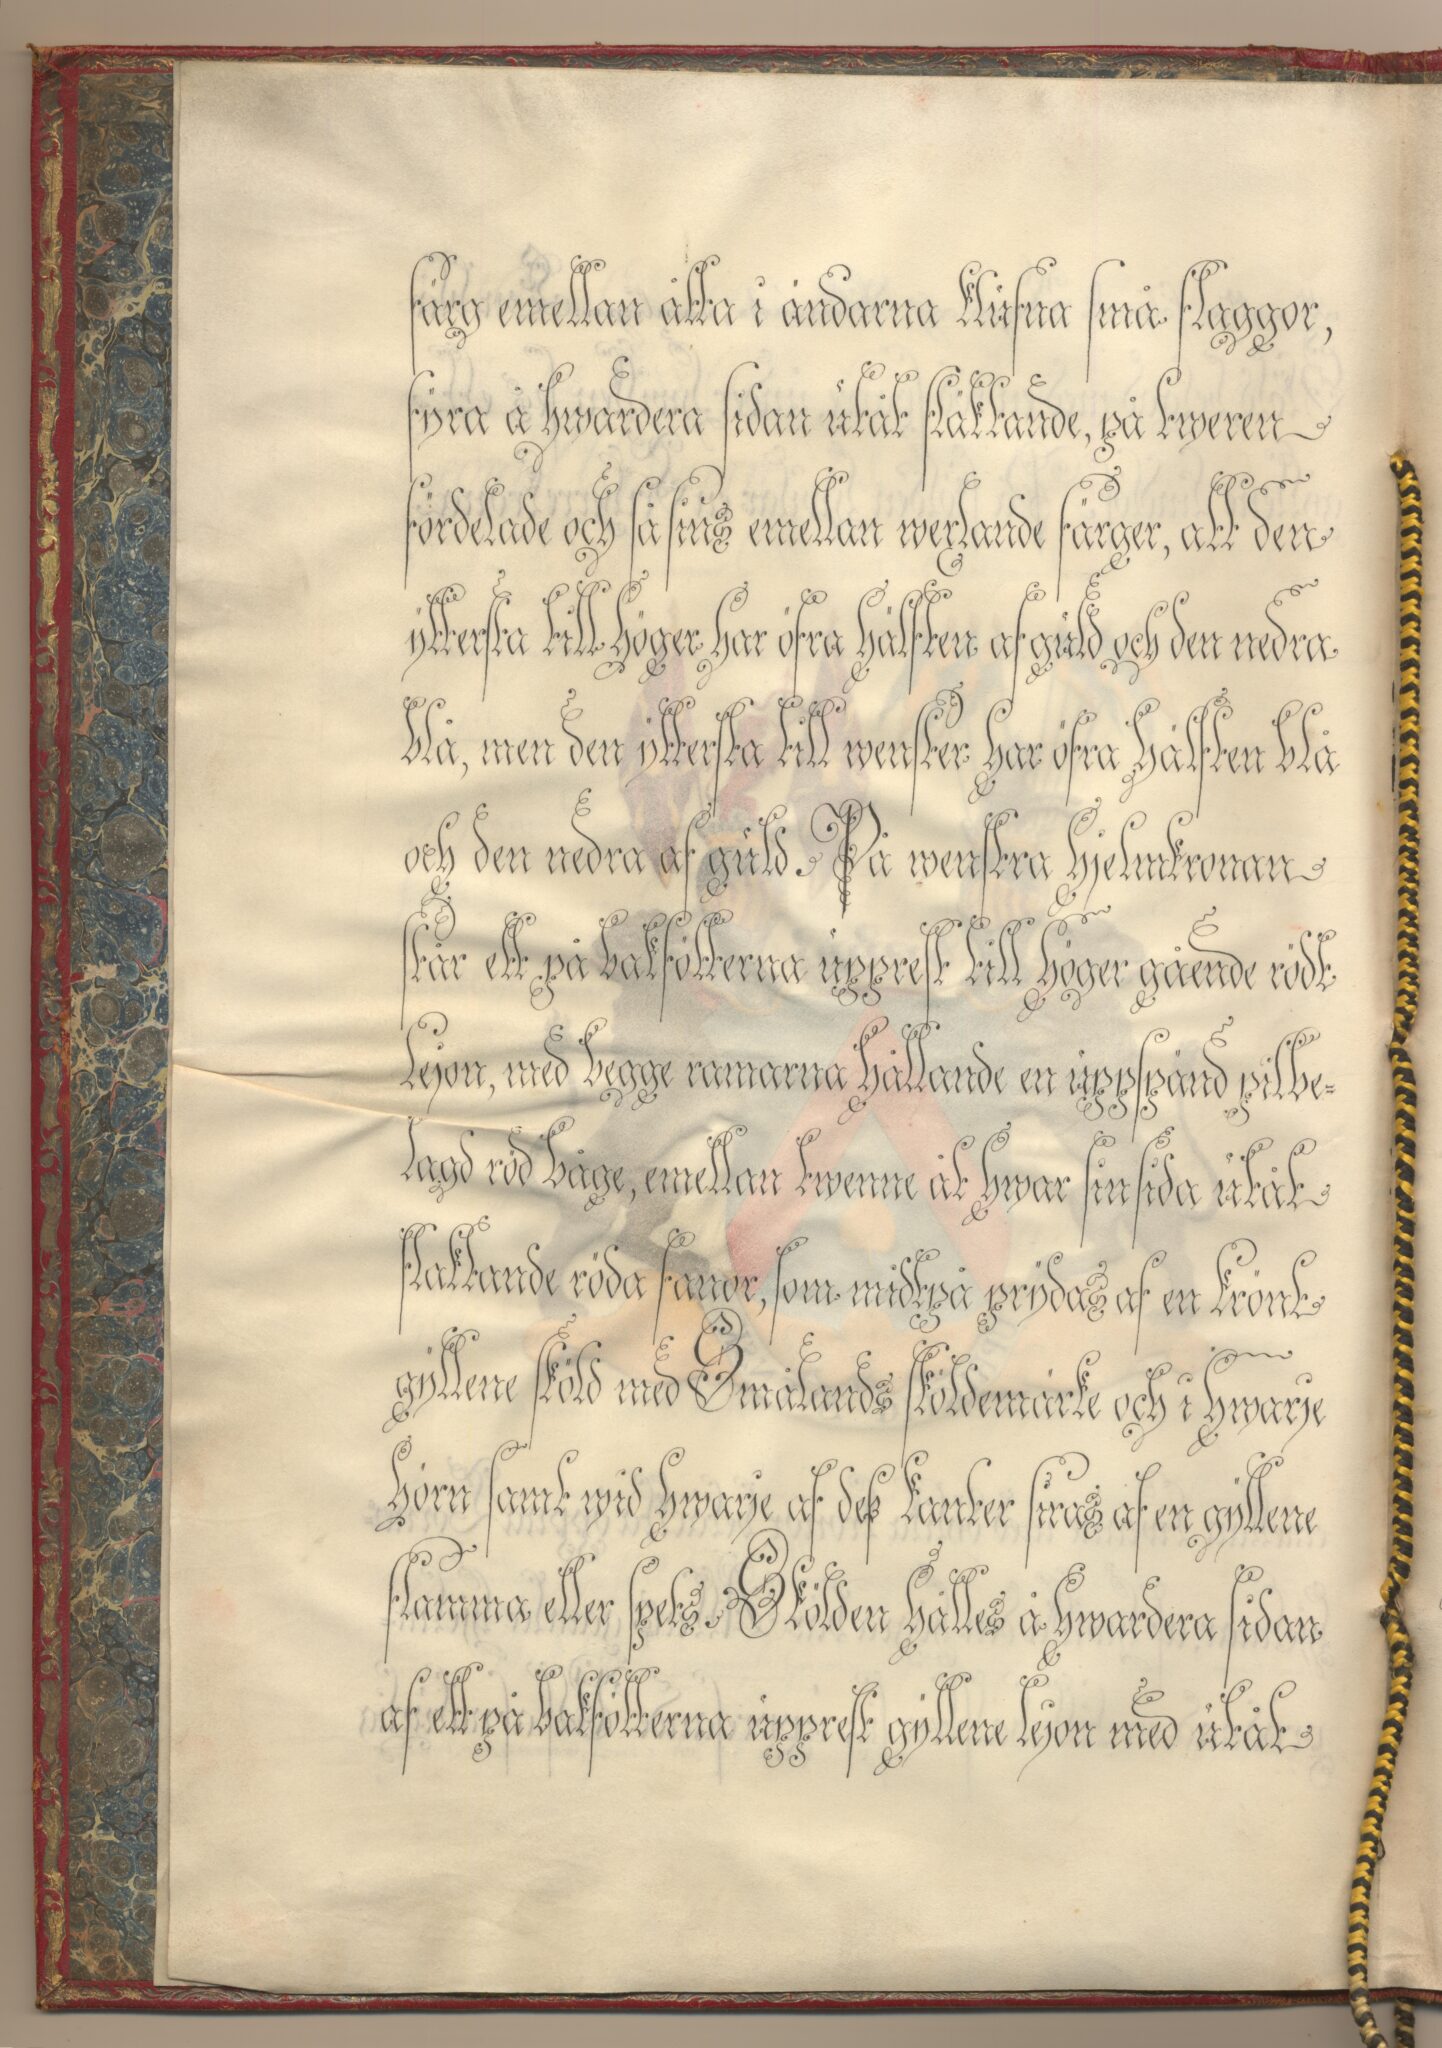 färg emellan åtta i ändarna klufna små flaggor,
fyra å hwardera sidan utåt fläktande, på tweren
fördelade och så sins emellan wexlande färger, att den
ytterſta till höger har öfra hälften af guld och den nedra
blå, men den ytterſta till wenſter har öfra hälften blå
och den nedra af guld. På wenſtra hjelmkronan
ſtår ett på bakfötterna uppreſt till höger gående rödt
lejon, med begge ramarna hållande en uppſpänd pilbe-
lagd röd båge, emellan twenne åt hwar ſin ſida utåt
flaktande röda fanor, ſom midtpå prydas af en krönt
gyllene ſköld med Smålands ſköldemärke och i hwarje
hörn ſamt wid hwarje af deß kanter ſiras af en gyllene
flamma eller ſpets. Skölden hålles å hwardera ſidan
af ett på bakfötterna uppreſt gyllene lejon med utåt